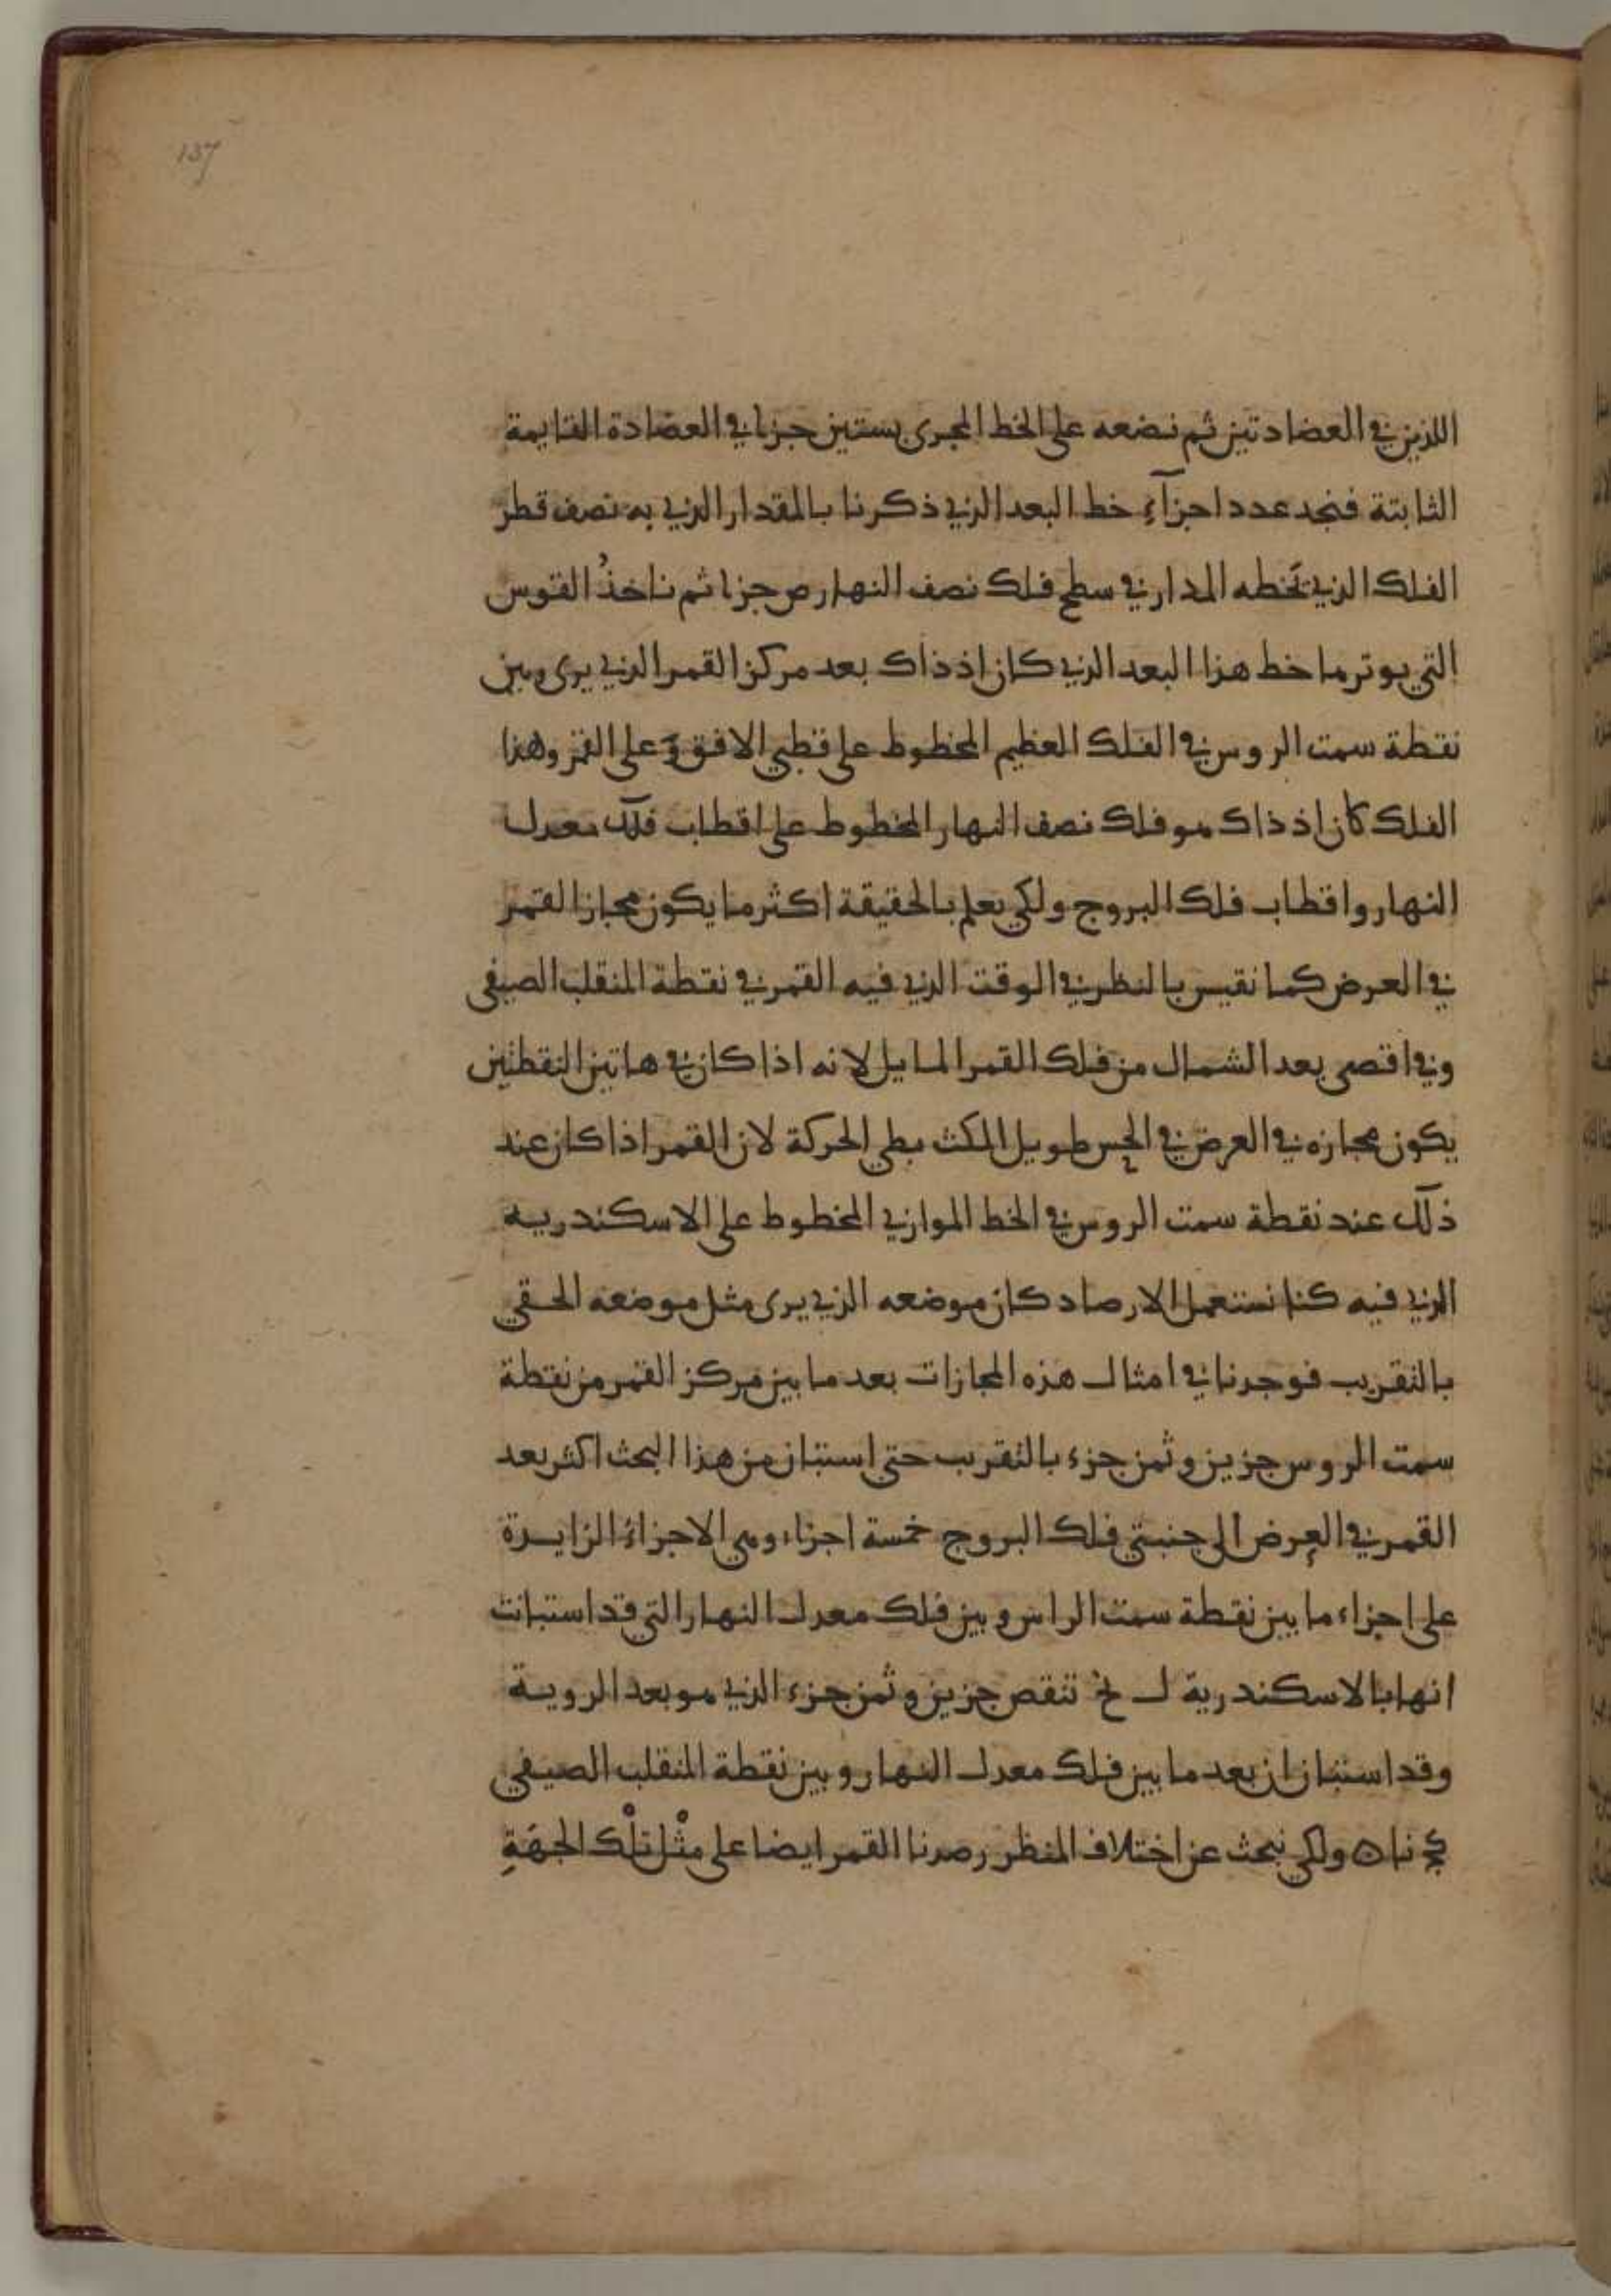 137
اللذين في العضادتين ثم نضعه على الخط المجرى بستين جزءا في العضادة القايمة
الثابتة فنجد عدد اجزآء خط البعد الذي ذكرنا بالمقدار الذي به نصف قطر
الفلك الذي تخطه المدار في سطح فلك نصف النهار ص جزءا ثم ناخذُ القوس
التي يوترها خط هذا البعد الذي كان اذ ذاك بعد مركز القمر الذي يرى وبين
نقطة سمت الروس في الفلك العظيم المخطوط على قطبي الافق وَعلى القمر وهذا
الفلك كان اذ ذاك هو فلك نصف النهار المخطوط على اقطاب فلك معدل
النهار واقطاب فلك البروج ولكي يعلم بالحقيقة اكثر ما يكون مجاز القمر
في العرض كما نقيس بالنظر في الوقت الذي فيه القمر في نقطة المنقلب الصيفي
وفي اقصى بعد الشمال من فلك القمر المايل لانه اذا كان في هاتين النقطتين
يكون مجازه في العرض في الحس طويل المكث بطي الحركة لان القمر اذا كان عند
ذلك عند نقطة سمت الروس في الخط الموازي المخطوط على الاسكندرية
الذي فيه كنا نستعمل الارصاد كان موضعه الذي يرى مثل موضعه الحقي
بالتقريب فوجدنا في امثال هذه المجازات بعد ما بين مركز القمر من نقطة
سمت الروس جزين وثمن جزء بالتقريب حتى استبان من هذا البحث اكثر بعد
القمر في العرض الى جنبتي فلك البروج خمسة اجزاء وهي الاجزاء الزايدة
على اجزاء ما بين نقطة سمت الراس وبين فلك معدل النهار التي قد استبانت
انها بالاسكندرية ل نح تنقص جزين وثمن جزء الذي هو بعد الروية
وقد استبان ان بعد ما بين فلك معدل النهار وبين نقطة المنقلب الصيفي
كج نا ه ولكي نبحث عن اختلاف المنظر رصدنا القمر ايضا على مثْل تلْك الجهَةِ